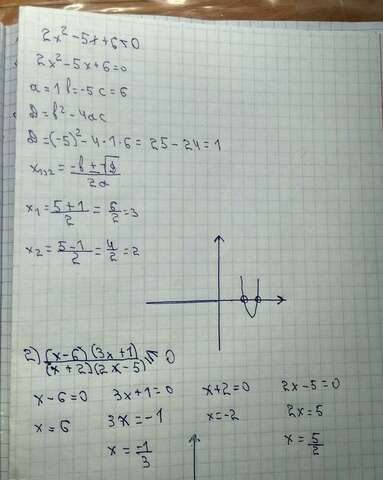 2x² - 5x + 6 < 0
2x² - 5x + 6 = 0
a = 1 b = -5 c = 6
D = b² - 4ac
D = (-5)² - 4 · 1 · 6 = 25 - 24 = 1
x₁,₂ = (-b ± √D)/2a
x₁ = (5 + 1)/2 = 6/2 = 3
x₂ = (5 - 1)/2 = 4/2 = 2
2) (x - 6)(3x + 1)/(x + 2)(2x - 5) ≤ 0
x - 6 = 0 3x + 1 = 0 x + 2 = 0 2x - 5 = 0
x = 6 3x = -1 x = -2 2x = 5
x = -1/3 x = 5/2